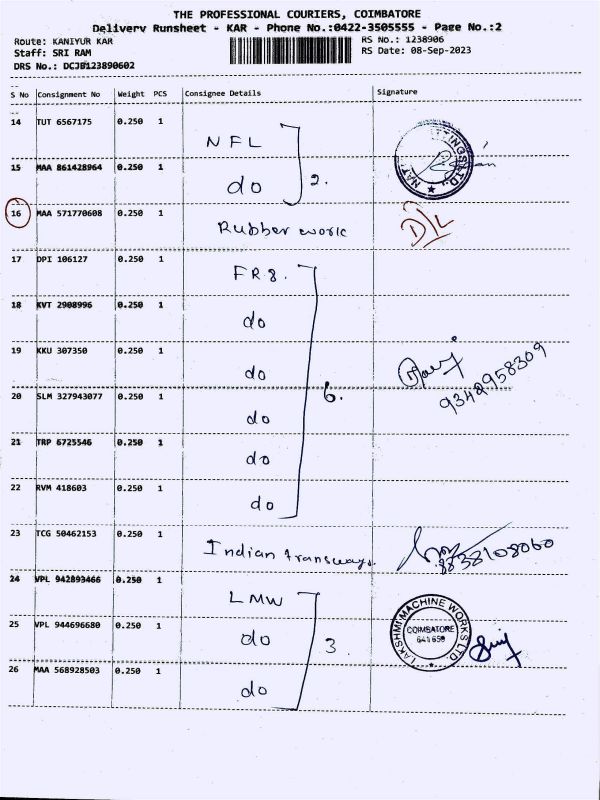 THE PROFESSIONAL COURIERS, COIMBATORE
Delivery Runsheet - KAR - Phone No.:0422-3505555 - Page No.:2
Route: KANIYUR KAR RS No.: 1238906
Staff: SRI RAM RS Date: 08-Sep-2023
DRS No.: DCJB123890602
S No Consignment No Weight PCS Consignee Details Signature
14 TUT 6567175 0.250 1 NFL
15 MAA 861428964 0.250 1 do 2.
16 MAA 571770608 0.250 1 Rubber work D/L
17 DPI 106127 0.250 1 FR8.
18 KVT 2908996 0.250 1 do
19 KKU 307350 0.250 1 do 6. 9342958309
20 SLM 327943077 0.250 1 do
21 TRP 6725546 0.250 1 do
22 RVM 418603 0.250 1 do
23 TCG 50462153 0.250 1 Indian transways. 8838108060
24 VPL 942893466 0.250 1 LMW
25 VPL 944696680 0.250 1 do 3. LAKSHMI MACHINE WORKS LTD COIMBATORE 641 659
26 MAA 568928503 0.250 1 do